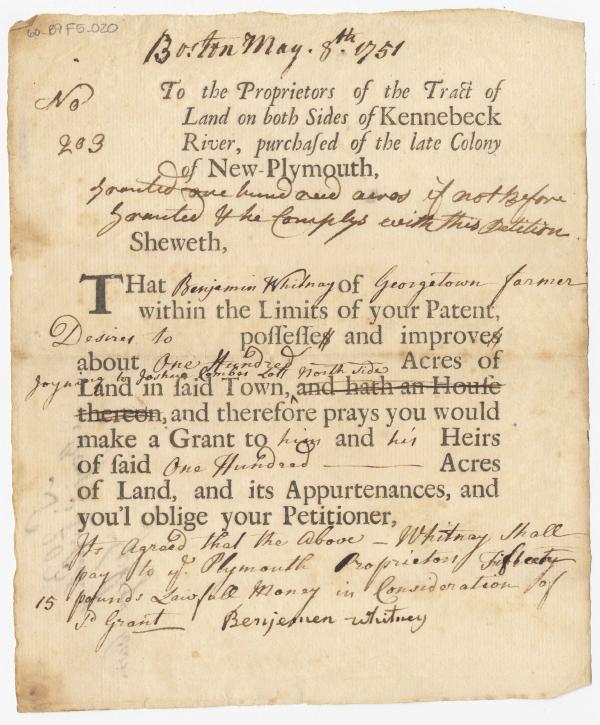 60-B9F5-020
Boston May. 8th. 1751
No
203
To the Proprietors of the Tract of
Land on both Sides of Kennebeck
River, purchaſed of the late Colony
of New-Plymouth,
Granted one hundred acres if not Before
Granted & he Complys with this Petition
Sheweth,
THat Benjamin Whitnay of Georgetown farmer
within the Limits of your Patent,
Desires to poſſeſſes and improves
about One Hundred Acres of
joyning to Joshua Combes Lott North Side
Land in ſaid Town, and hath an Houſe
thereon, and therefore prays you would
make a Grant to him and his Heirs
of ſaid One Hundred Acres
of Land, and its Appurtenances, and
you'l oblige your Petitioner,
Its Agreed that the Above - Whitnay Shall
pay to ye. Plymouth Proprietors
15 pounds Lawfull Money in Consideration of
sd Grant Benjemen whitney